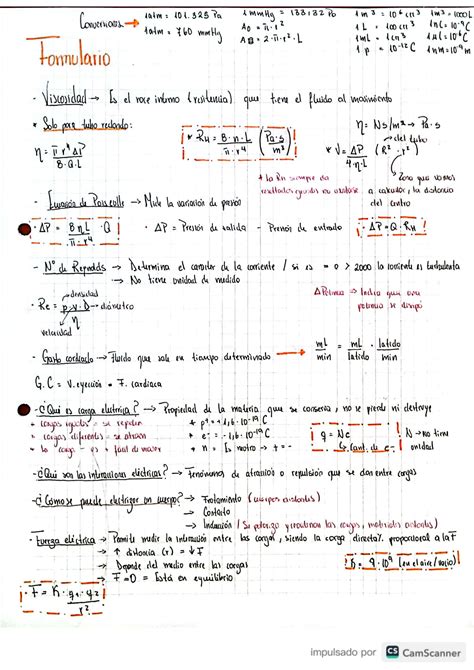 Conversiones → 1atm = 101.325 Pa
1atm = 760 mmHg
1 mmHg = 133.132 Pa
A0 = π·r²
AD = 2·π·r²·L
1 m³ = 10⁶ cm³ 1m³ = 1000L
1 L = 100 cm³ 1nC = 10⁻⁹ C
1mL = 1cm³ 1μC = 10⁻⁶ C
1 p = 10⁻¹² C 1nm = 10⁻⁹ m
Formulario
- Viscosidad → Es el roce interno (resistencia) que tiene el fluido al movimiento
* Solo para tubo redondo:
η = π·r⁴ΔP / 8·Q·L
* RH = 8·η·L / π·r⁴ (Pa·s / m³)
η = Ns/m² → Pa·s
* V = ΔP / 4·η·L (R² - r²)
→ del tubo
* La RH siempre da
resultados
Zona que vamos
a calcular, la distancia
del centro
- Ecuación de Poiseuille → Mide la variación de presión
· ΔP = 8·η·L / π·r⁴ · Q
· ΔP = Presión de salida - Presión de entrado
· ΔP = Q·RH
- N° de Reynolds → Determina el caracter de la corriente / si es = o > 2000 la corriente es turbulenta
→ No tiene unidad de medida
· Re = ρ·v·D → diámetro
densidad
velocidad
→ Indica que
potencia se disipó
- Gasto cardíaco → Fluido que sale en tiempo determinado → mL/min = mL/latido · latido/min
G.C = V.eyección * F. cardiaca
- ¿Qué es carga eléctrica? → Propiedad de la materia que se conserva, no se pierde ni destruye
* cargas iguales = se repelen
* cargas diferentes = se atraen
* p⁺ = +1,6·10⁻¹⁹ C
* e⁻ = -1,6·10⁻¹⁹ C
* n = Es neutro → + = -
q = N·e
→ Cant. de e⁻
N → no tiene
unidad
- ¿Qué son las interacciones eléctricas? → Fenómenos de atracción o repulsión que se dan entre cargas
- ¿Cómo se puede electrizar un cuerpo? → Frotamiento (cuerpos distintos)
→ Contacto
→ Inducción
- Fuerza eléctrica → Permite medir la interacción entre las cargas, siendo la carga direct% proporcional a la F
→ ↑ distancia (r) = ↓F
→ Depende del medio entre las cargas
→ F = 0 = Está en equilibrio
K = 9·10⁹ (en el aire/vacío)
· F = K · q₁·q₂ / r²
impulsado por CS CamScanner